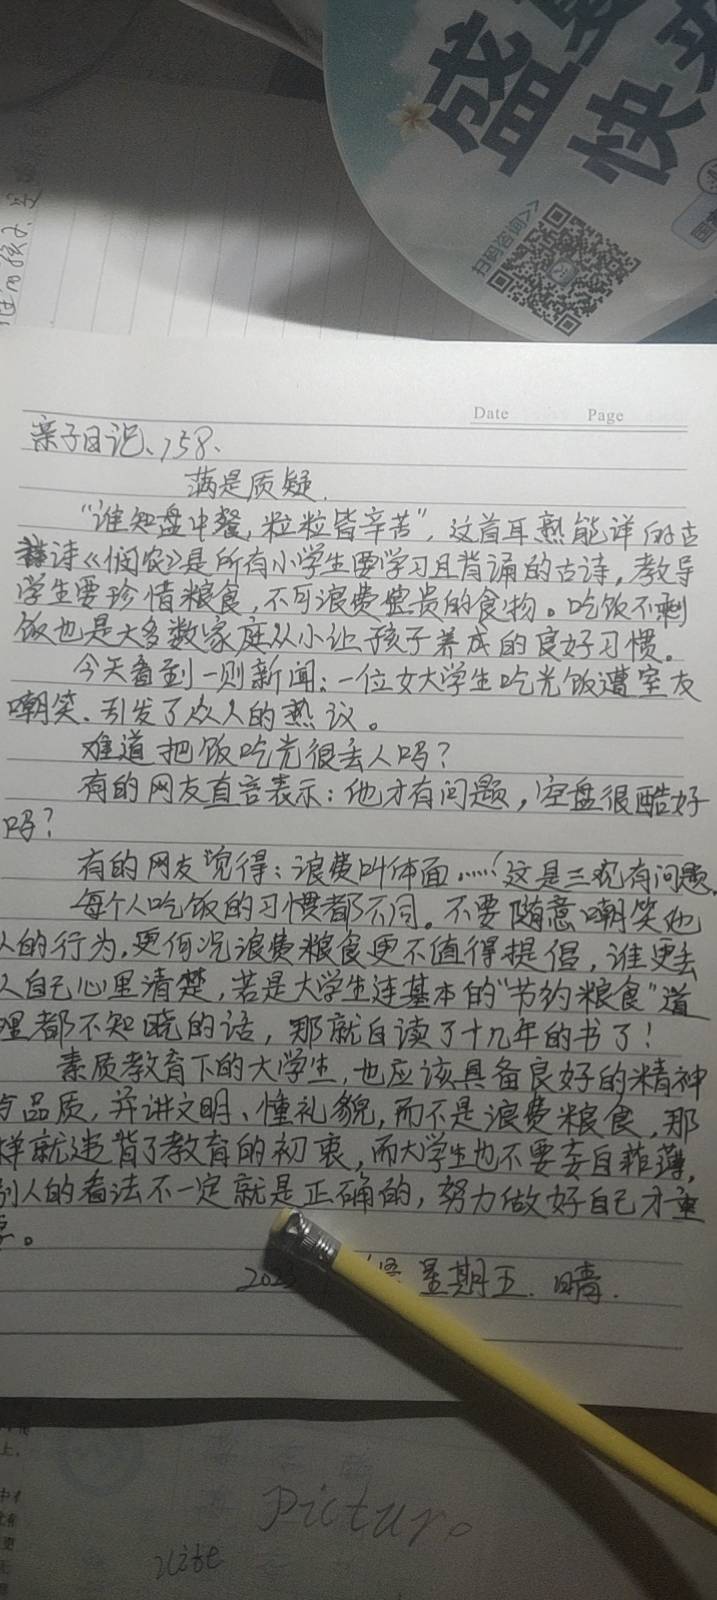 盛
快
扫码咨询>>
Date Page
亲子日记、158、
满是质疑.
"谁知盘中餐,粒粒皆辛苦",这首耳熟能详的古
诗《悯农》是所有小学生要学习且背诵的古诗,教导
学生要珍惜粮食,不可浪费宝贵的食物。吃饭不剩
饭也是大多数家庭从小让孩子养成的良好习惯。
今天看到一则新闻:一位女大学生吃光饭遭室友
嘲笑、引发了众人的热议。
难道把饭吃光很丢人吗?
有的网友直言表示:他才有问题,空盘很酷好
吗?
有的网友觉得:浪费叫体面……这是三观有问题.
每个人吃饭的习惯都不同。不要随意嘲笑他
人的行为,更何况浪费粮食更不值得提倡,谁更丢
人自己心里清楚,若是大学生连基本的"节约粮食"道
理都不知晓的话,那就白读了十几年的书了!
素质教育下的大学生,也应该具备良好的精神
与品质,并讲文明、懂礼貌,而不是浪费粮食,那
样就违背了教育的初衷,而大学生也不要妄自菲薄,
别人的看法不一定就是正确的,努力做好自己才重
要。
202 星期五.晴.
Pictur